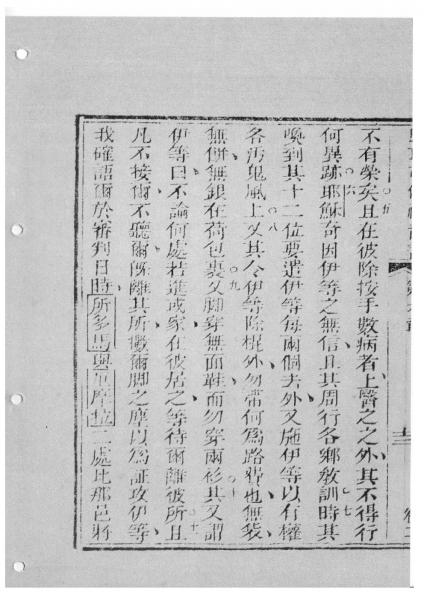 不有榮矣○五且在彼除按手數病者上醫之之外其不得行
何異跡○六耶穌奇因伊等之無信且其周行各鄉教訓時其○七
喚到其十二位要遣伊等每兩個去外又施伊等以有權
各污鬼風上○八又其令伊等除棍外勿帶何為路費也無袋
無餅無銀在荷包裏○九又腳穿無面鞋而勿穿兩衫其又謂○十
伊等曰不論何處若進或家在彼居之等待爾離彼所且○十一
凡不接爾不聽爾既離其所撒爾腳之塵以為証攻伊等
我確語爾於審判日時所多馬與厄摩拉二處比那邑將